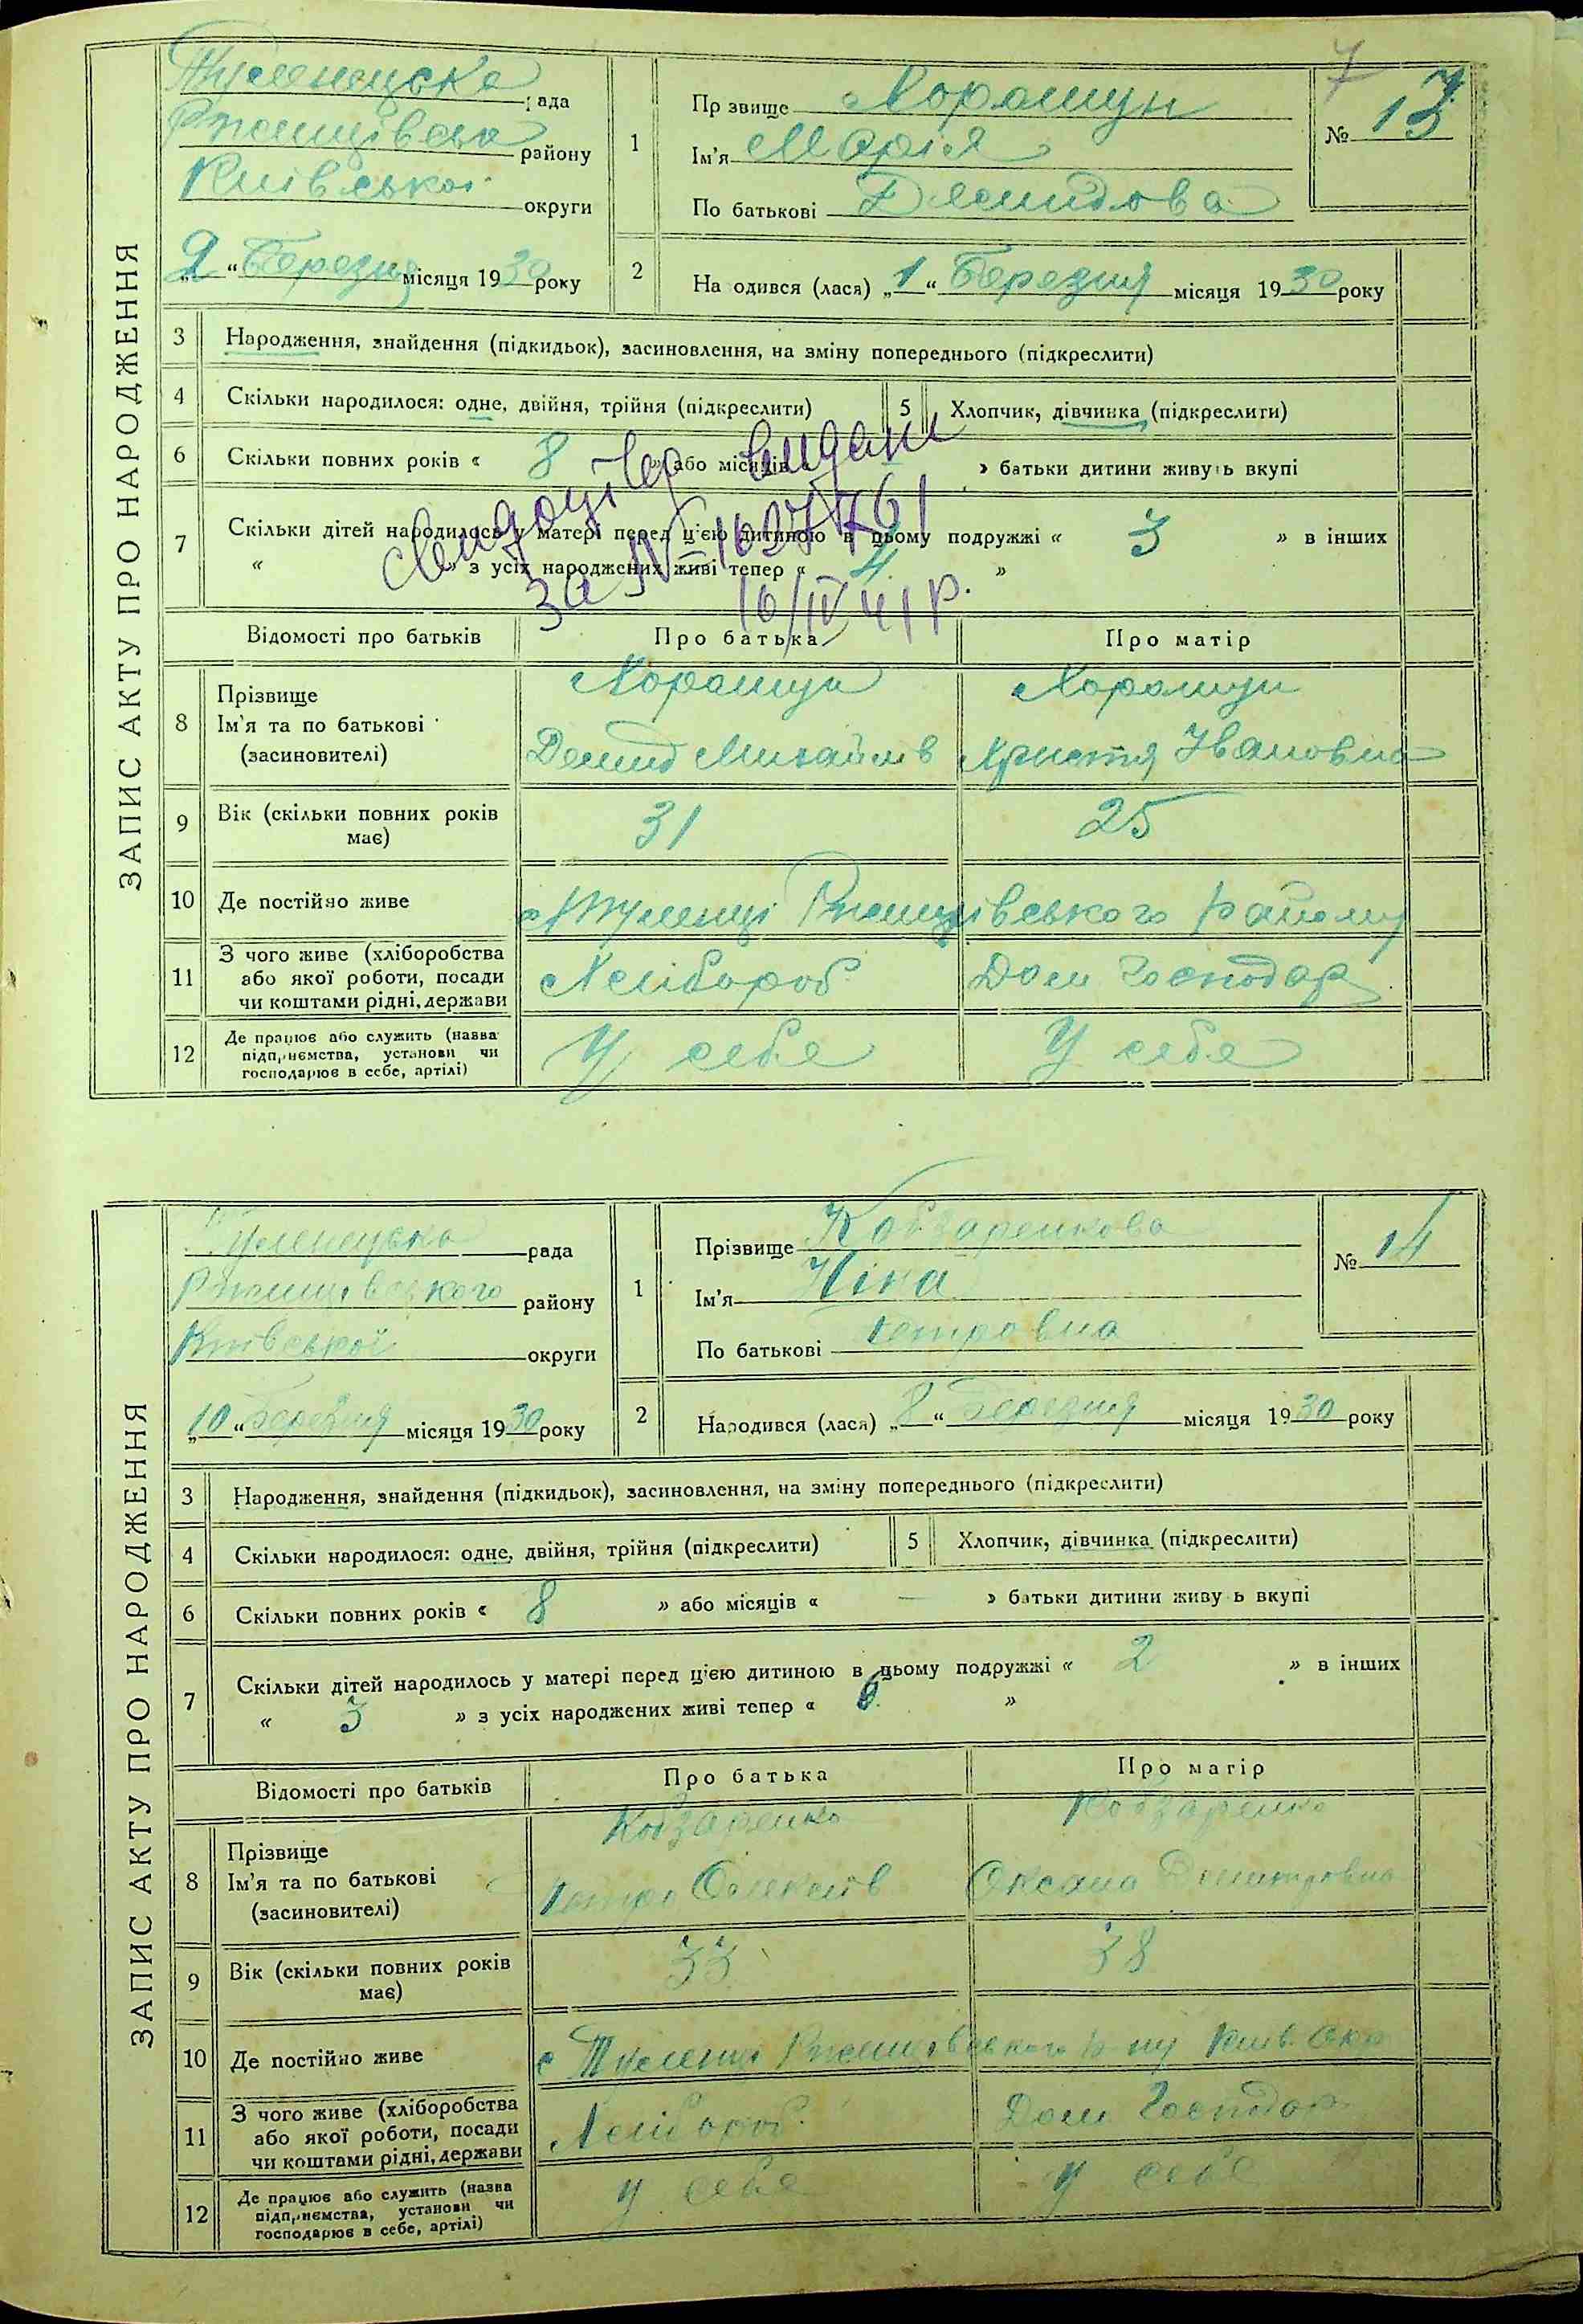 ЗАПИС АКТУ ПРО НАРОДЖЕННЯ
7
рада
району
Київської округи
„2“ Березня місяця 1930 року
1
Прізвище Хорошун
Ім'я Марія
По батькові Демидова
№ 13
2
На одився (лася) „1“ Березня місяця 1930 року
3 Народження, знайдення (підкидьок), засиновлення, на зміну попереднього (підкреслити)
4 Скільки народилося: одне, двійня, трійня (підкреслити)
5 Хлопчик, дівчинка (підкреслити)
6 Скільки повних років « 8 » або місяців « » батьки дитини живуть вкупі
7 Скільки дітей народилось у матері перед цією дитиною в цьому подружжі « 3 » в інших
« » з усіх народжених живі тепер « 4 »
видані
за № 1627761
16/IV 41 р.
Відомості про батьків Про батька Про матір
8 Прізвище
Ім'я та по батькові
(засиновителі)
Хорошун
Демид Михайлів
Хорошун
Христя Івановна
9 Вік (скільки повних років
має)
31 25
10 Де постійно живе
району
11 З чого живе (хліборобства
або якої роботи, посади
чи коштами рідні, держави
Хлібороб Дом Господар
12 Де працює або служить (назва
підприємства, установи чи
господарює в себе, артілі)
У себе У себе
ЗАПИС АКТУ ПРО НАРОДЖЕННЯ
рада
району
Київської округи
„10“ Березня місяця 1930 року
1
Прізвище Кобзаренкова
Ім'я Ніна
По батькові Петровна
№ 14
2
Народився (лася) „8“ Березня місяця 1930 року
3 Народження, знайдення (підкидьок), засиновлення, на зміну попереднього (підкреслити)
4 Скільки народилося: одне, двійня, трійня (підкреслити)
5 Хлопчик, дівчинка (підкреслити)
6 Скільки повних років « 8 » або місяців « — » батьки дитини живу ь вкупі
7 Скільки дітей народилось у матері перед цією дитиною в цьому подружжі « 2 » в інших
« 3 » з усіх народжених живі тепер « 6 »
Відомості про батьків Про батька Про матір
8 Прізвище
Ім'я та по батькові
(засиновителі)
Кобзаренко
Петро
Кобзаренко
Оксана
9 Вік (скільки повних років
має)
33 38
10 Де постійно живе
11 З чого живе (хліборобства
або якої роботи, посади
чи коштами рідні, держави
Хлібороб Дом Господар
12 Де працює або служить (назва
підприємства, установи чи
господарює в себе, артілі)
у себе у себе